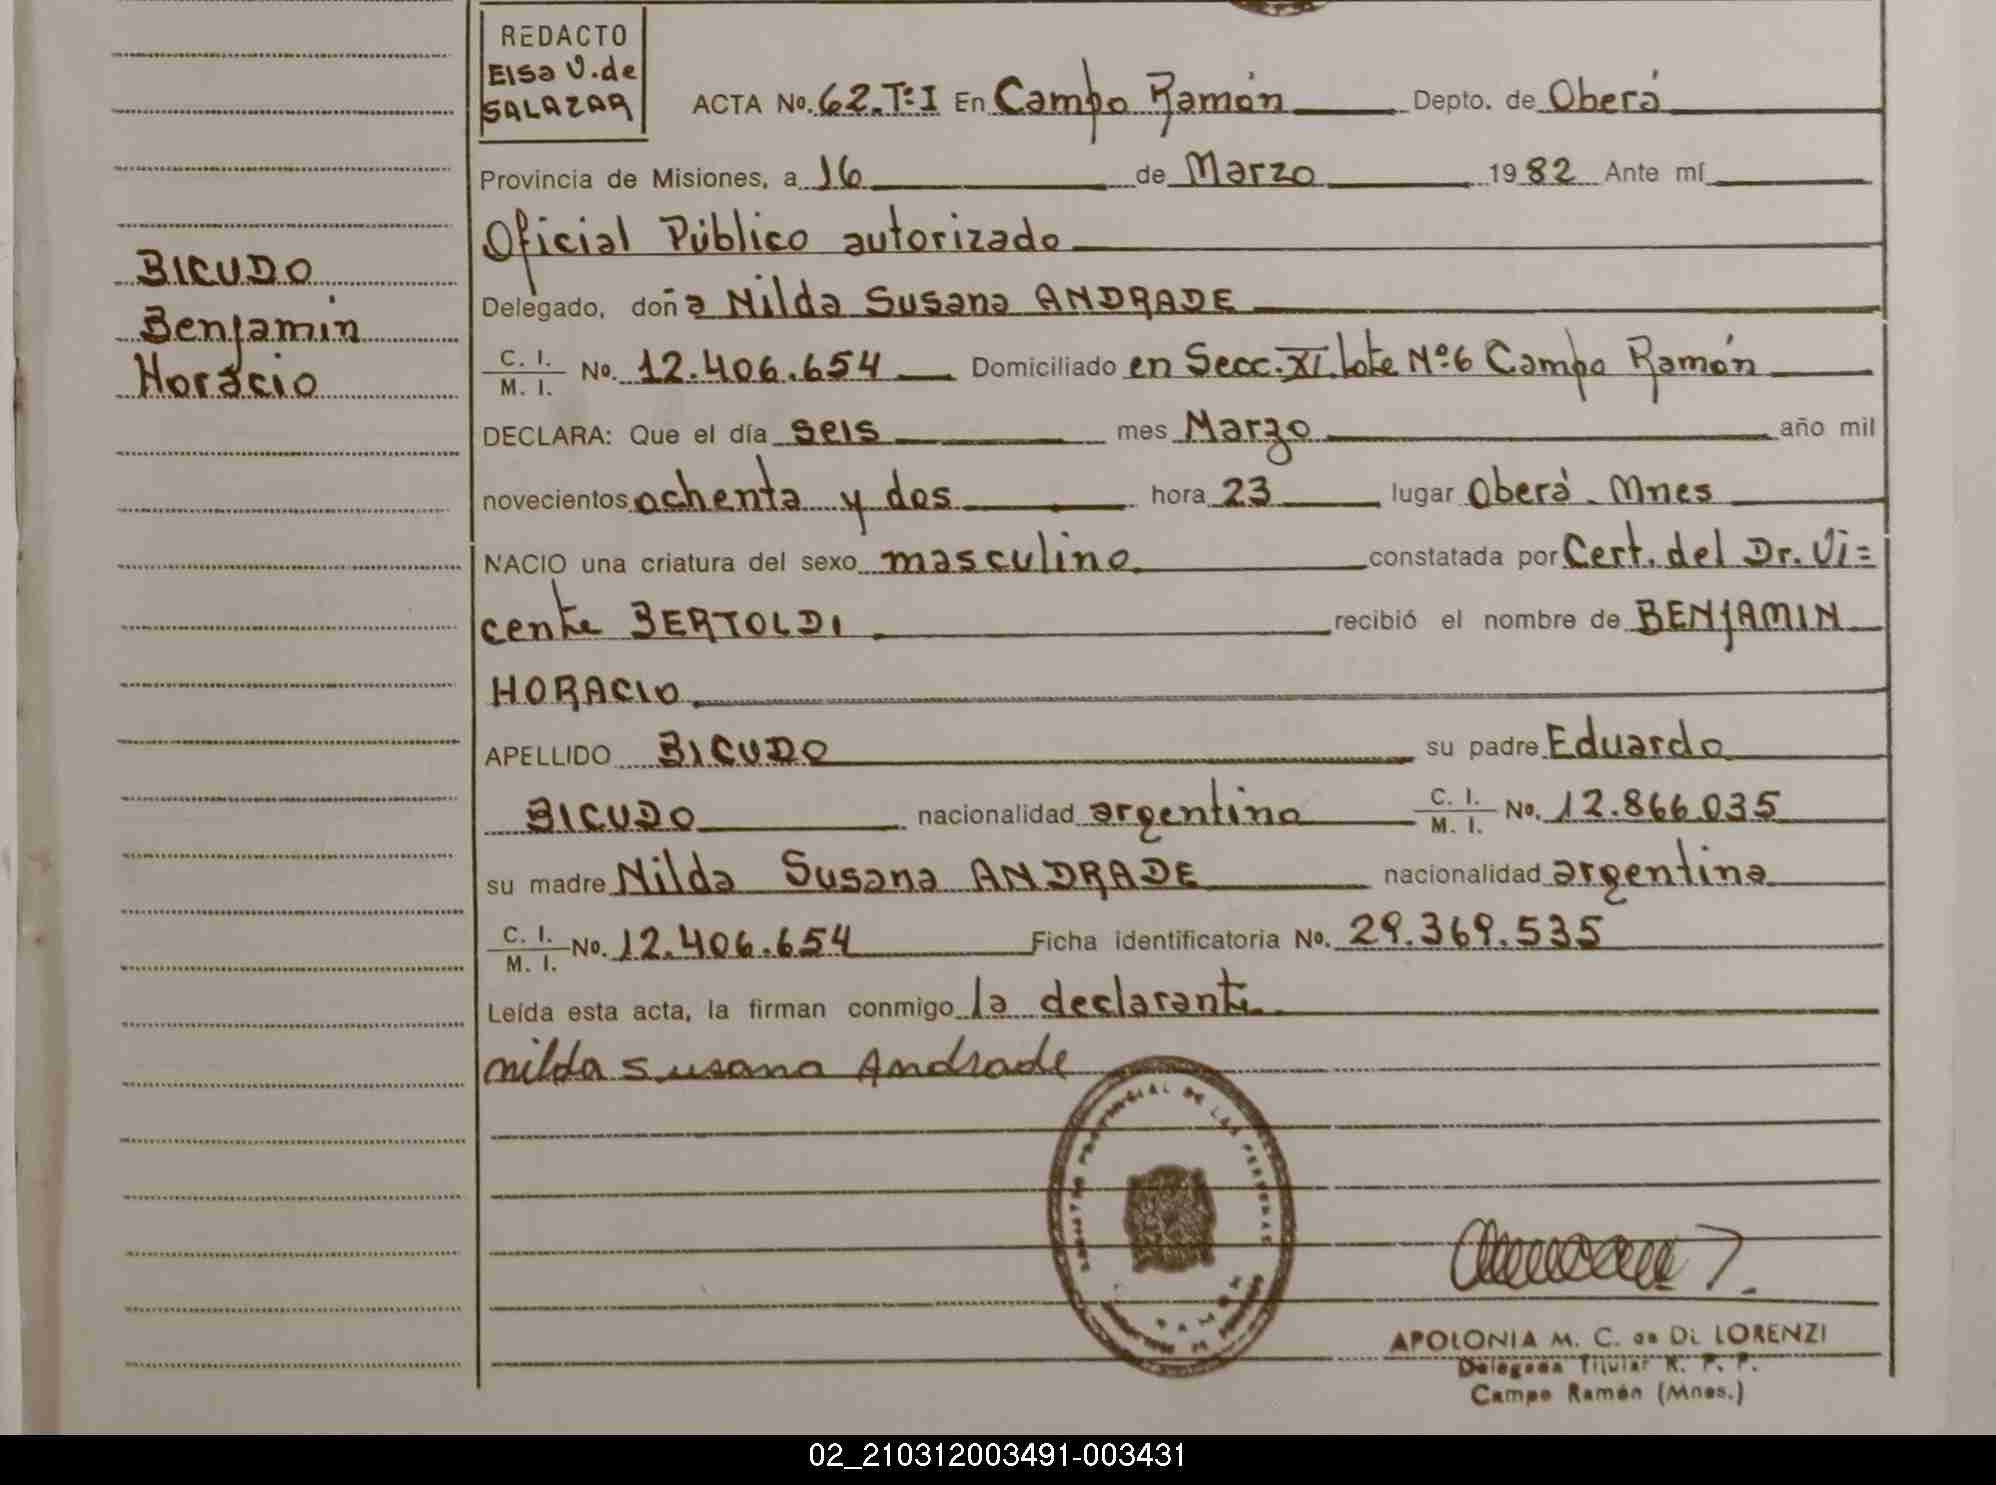 REDACTO
Elsa V. de
SALAZAR
ACTA No. 62.Tº:I En Campo Ramón Depto. de Oberá
Provincia de Misiones, a 16 de Marzo 1982 Ante mí
Oficial Público autorizado
BICUDO
Benjamín
Horacio
Delegado, doña Nilda Susana ANDRADE
C. I.
M. I. No. 12.406.654 Domiciliado en Secc. XI. lote Nº 6 Campo Ramón
DECLARA: Que el día seis mes Marzo año mil
novecientos ochenta y dos hora 23 lugar Oberá. Mnes
NACIO una criatura del sexo masculino constatada por Cert. del Dr. Vi=
cente BERTOLDI recibió el nombre de BENjAMIN
HORACIO
APELLIDO BICUDO su padre Eduardo
BICUDO nacionalidad argentino C. I.
M. I. No. 12.866.035
su madre Nilda Susana ANDRADE nacionalidad argentina
C. I.
M. I. No. 12.406.654 Ficha identificatoria No. 29.369.535
Leída esta acta, la firman conmigo la declarante
nilda Susana Andrade
PROVINCIAL DE LAS PERSONAS
APOLONIA M. C. de DI LORENZI
Delegada Titular R. P. P.
Campo Ramón (Mnes.)
02_210312003491-003431